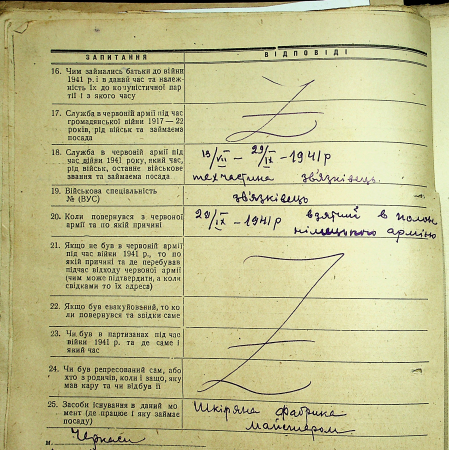 ЗАПИТАННЯ
ВІДПОВІДІ
16. Чим займались батьки до війни
1941 р. і в даний час та належ-
ність їх до комуністичної пар-
тії і з якого часу
17. Служба в червоній армії під час
громадянської війни 1917—22
років, рід військ та займаєма
посада
18. Служба в червоній армії під
час дійни 1941 року, який час,
рід військ, останнє військове
звання та займаєма посада
19/VII — 29/IX -1941р
техчастина зв'язківець.
19. Військова спеціяльність
№ (ВУС)
зв'язківець
20. Коли повернувся з червоної
армії та по якій причині
29/IX -1941р взятий в полон
німецькою армією
21. Якщо не був в червоній армії
під час війни 1941 р., то по
якій причині та де перебував
під час відходу червоної армії
(чим може підтвердити, а коли
свідками то їх адреса)
22. Якщо був евакуйований, то ко
ли повернувся та звідки саме
23. Чи був в партизанах під час
війни 1941 р. та де саме і
який час
24. Чи був репресований сам, або
хто з родичів, коли і защо, яку
мав кару та чи відбув її
25. Засоби існування в даний мо
мент (де працює і яку займає
посаду)
Шкіряна фабрика
майстером
м. Черкаси